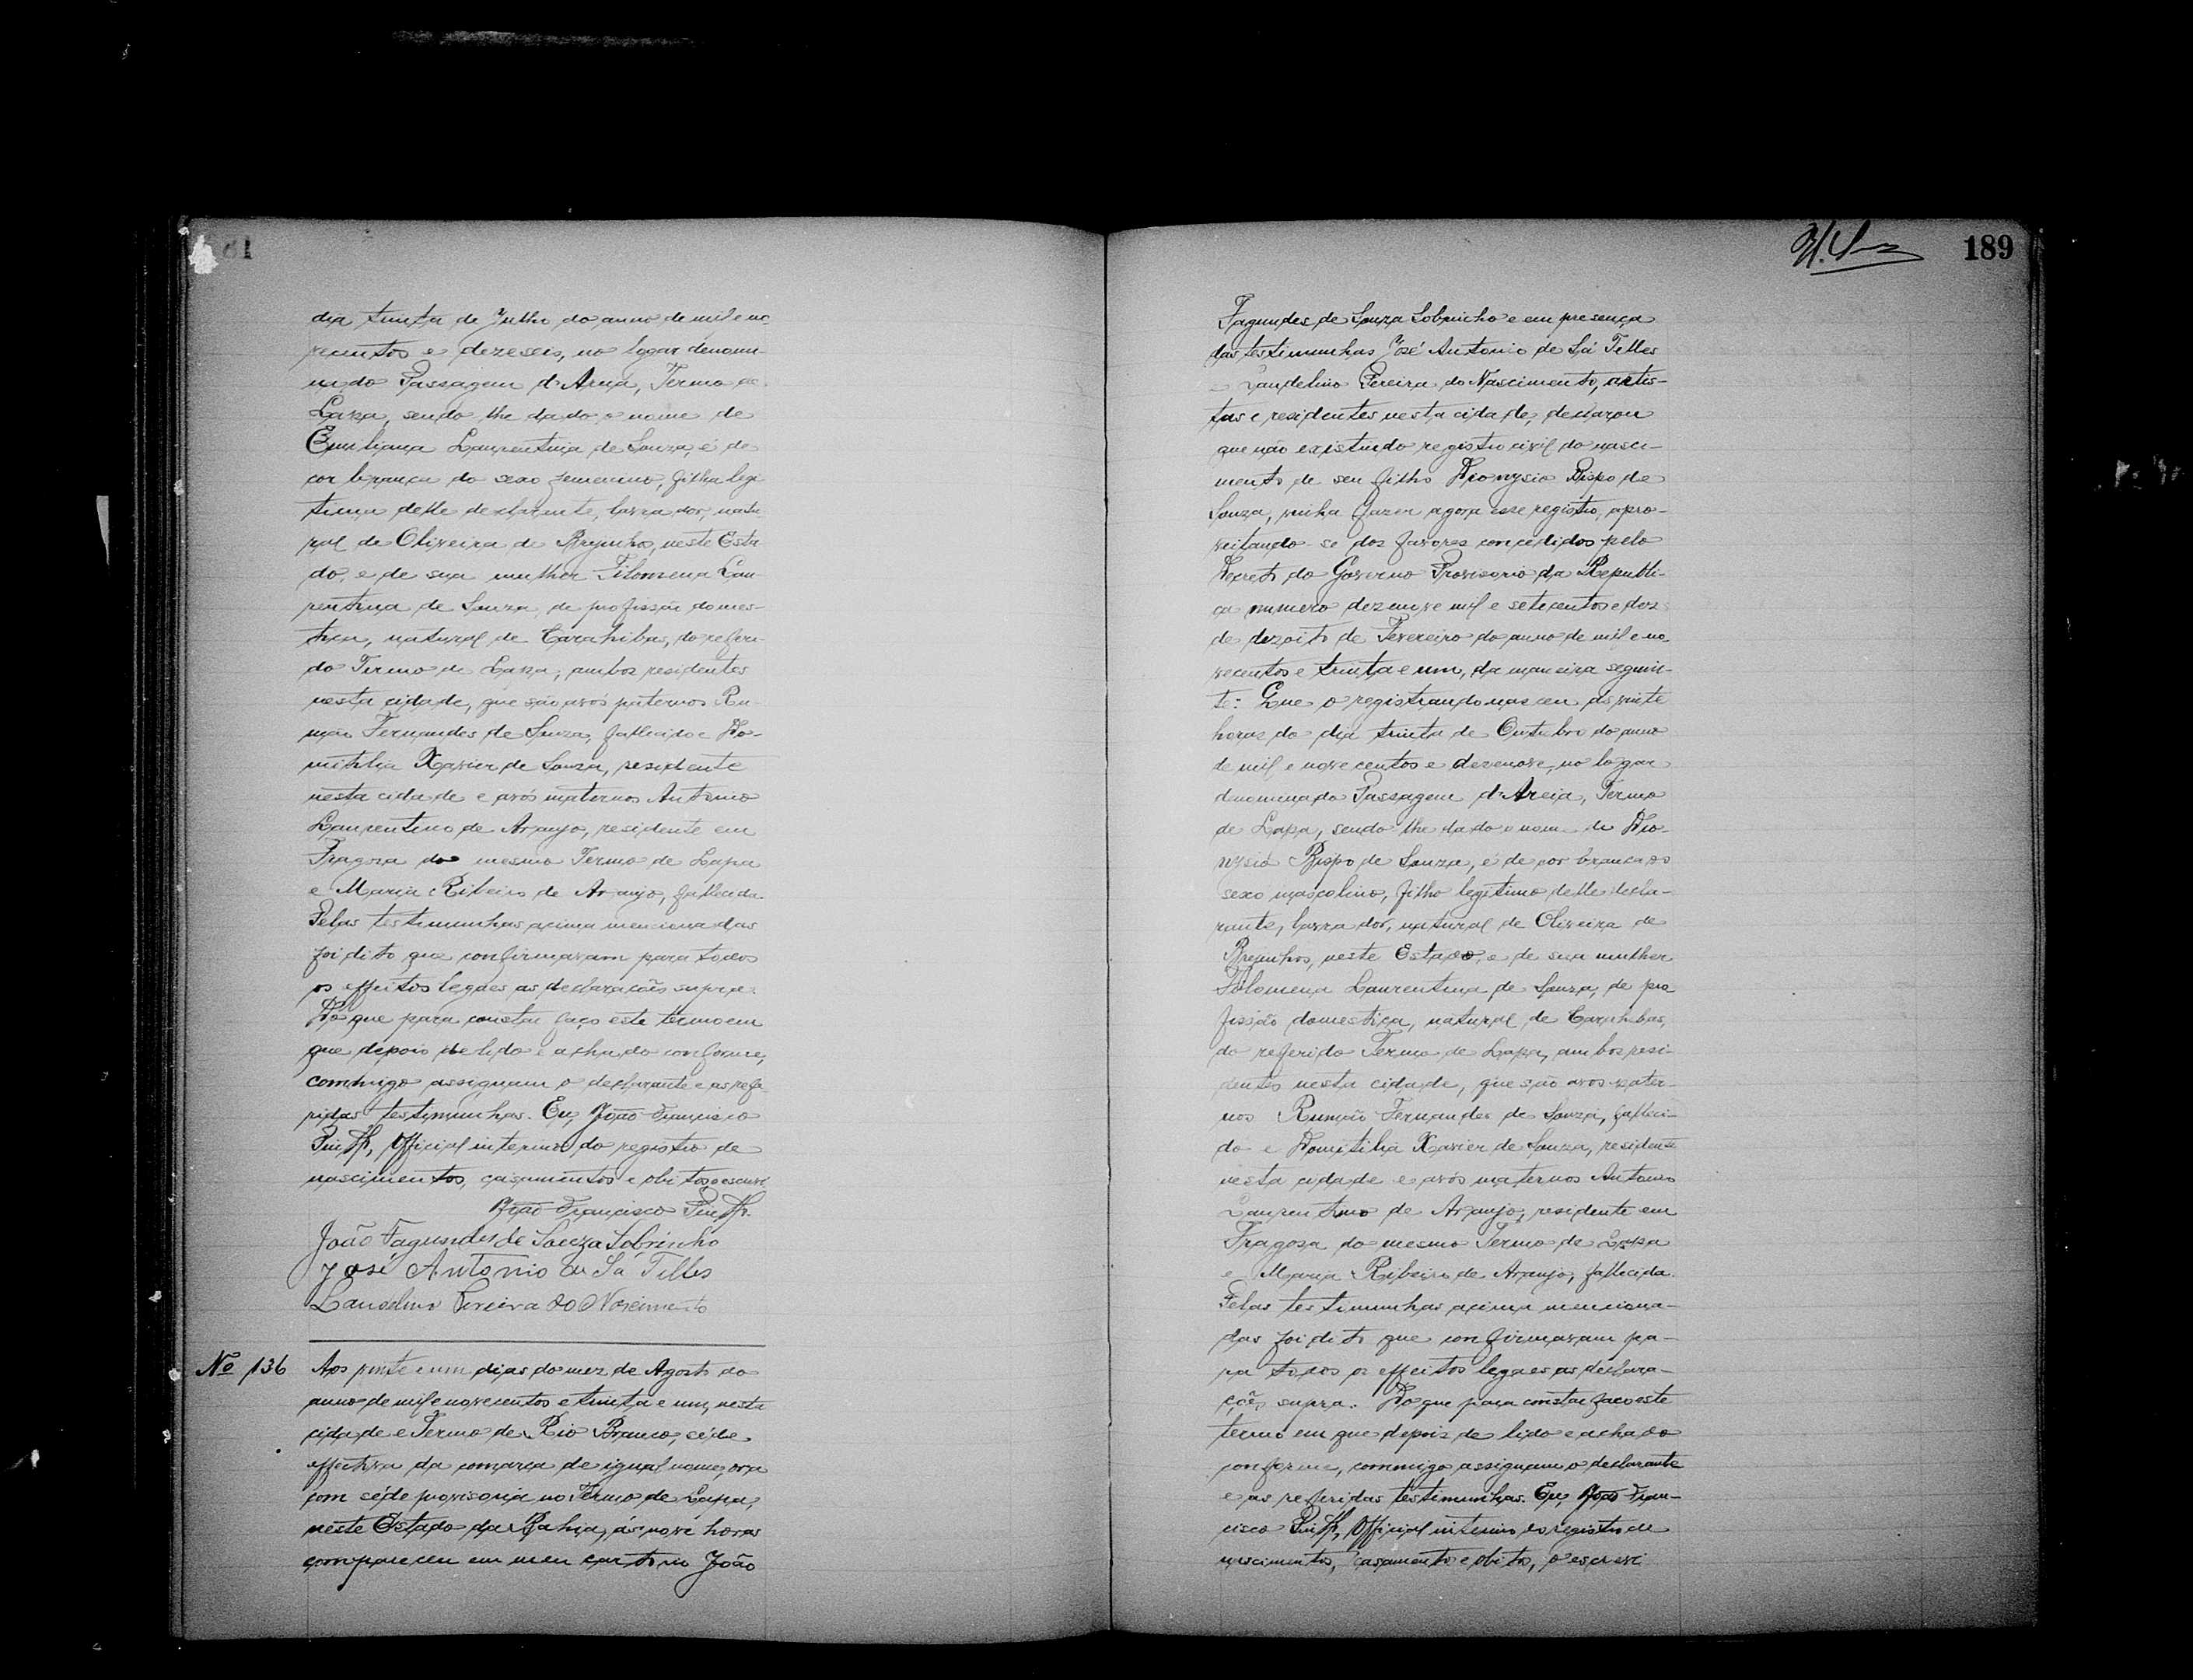 81
dia trinta de Julho do anno de mil e no-
vecentos e dezeseis, no logar denomi-
nado Passagem d'Areia, Termo de
Lapa, sendo-lhe dado o nome de
Emiliana Laurentina de Souza, é de
cor branca do sexo femenino, filha legi-
tima delle declarante, lavrador, natu-
ral de Oliveira de Brejinhos, neste Esta-
do, e de sua mulher Filomena Lau-
rentina de Souza, de profissão domes-
tica, natural de Carahibas, do referi-
do Termo de Lapa, ambos residentes
nesta cidade, que são avós paternos Ru-
mão Fernandes de Souza, fallecido e Do-
mitilia Xavier de Souza, residente
nesta cidade e avós maternos Antonio
Laurentino de Araujo, residente em
Fragosa do mesmo Termo de Lapa
e Maria Ribeiro de Araujo, fallecida.
Pelas testimunhas acima mencionadas
foi dito que confirmavam para todos
os effeitos legaes as declarações supra.
Do que para constar faço este termo em
que depois de lido e achado conforme,
commigo assignam o declarante e as refe-
ridas testimunhas. Eu, João Francisco
Official interino do registro de
nascimentos, casamentos e obitos, o escrevi
João Francisco
João Fagundes de Souza Sobrinho
José Antonio de Sá Telles
Laudelino Pereira do Nascimento
Nº 136 Aos vinte e um dias do mez de Agosto do
anno de mil e novecentos e trinta e um, nesta
cidade e Termo de Rio Branco, séde
effectiva da comarca de igual nome, ora
com séde provisoria no Termo de Lapa,
neste Estado da Bahia, ás nove horas
compareceu em meu cartorio João
189
Fagundes de Souza Sobrinho e em presença
das testimunhas José Antonio de Sá Telles
e Laudelino Pereira do Nascimento, artis-
tas e residentes nesta cidade, declarou
que não existindo registro civil do nasci-
mento de seu filho Dionysio Bispo de
Souza, vinha fazer agora esse registro, apro-
veitando-se dos favores concedidos pelo
Decreto do Governo Provisorio da Republi-
ca numero dezenove mil e setecentos e dez
de dezoito de Fevereiro do anno de mil e no-
vecentos e trinta e um, da maneira seguin-
te: Que o registrando nasceu ás vinte
horas do dia trinta de Outubro do anno
de mil e novecentos e dezenove, no logar
denominado Passagem d'Areia, Termo
de Lapa, sendo-lhe dado o nome de Dio-
nysio Bispo de Souza, é de cor branca do
sexo mascolino, filho legitimo delle decla-
rante, lavrador, natural de Oliveira de
Brejinhos, neste Estado, e de sua mulher
Filomena Laurentina de Souza, de pro-
fissão domestica, natural de Carahibas,
do referido Termo de Lapa, ambos resi-
dentes nesta cidade, que são avós pater-
nos Rumão Fernandes de Souza, falleci-
do e Domitilia Xavier de Souza, residente
nesta cidade e avós maternos Antonio
Laurentino de Araujo, residente em
Fragosa do mesmo Termo de Lapa
e Maria Ribeiro de Araujo, fallecida.
Pelas testimunhas acima menciona-
das foi dito que confirmavam pa-
ra todos os effeitos legaes as declara-
ções supra. Do que para constar faço este
termo em que depois de lido e achado
conforme, commigo assignam o declarante
e as referidas testimunhas. Eu, João Fran-
cisco Official interino do registro de
nascimentos, casamentos e obitos, o escrevi